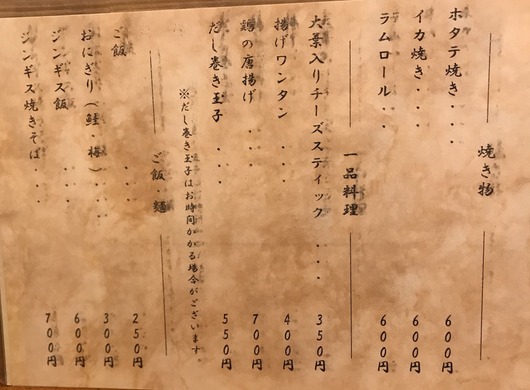 焼き物
ホタテ焼き・・・ 600円
イカ焼き・・・ 600円
ラムロール・・ 600円
一品料理
大葉入りチーズスティック・・・ 350円
揚げワンタン・・・ 400円
鶏の唐揚げ・・・ 700円
だし巻き玉子・・・ 550円
※だし巻き玉子はお時間かかる場合がございます。
ご飯・麺
ご飯・・・ 250円
おにぎり（鮭・梅）・・・ 300円
ジンギス飯・・・ 600円
ジンギス焼きそば・・・ 700円